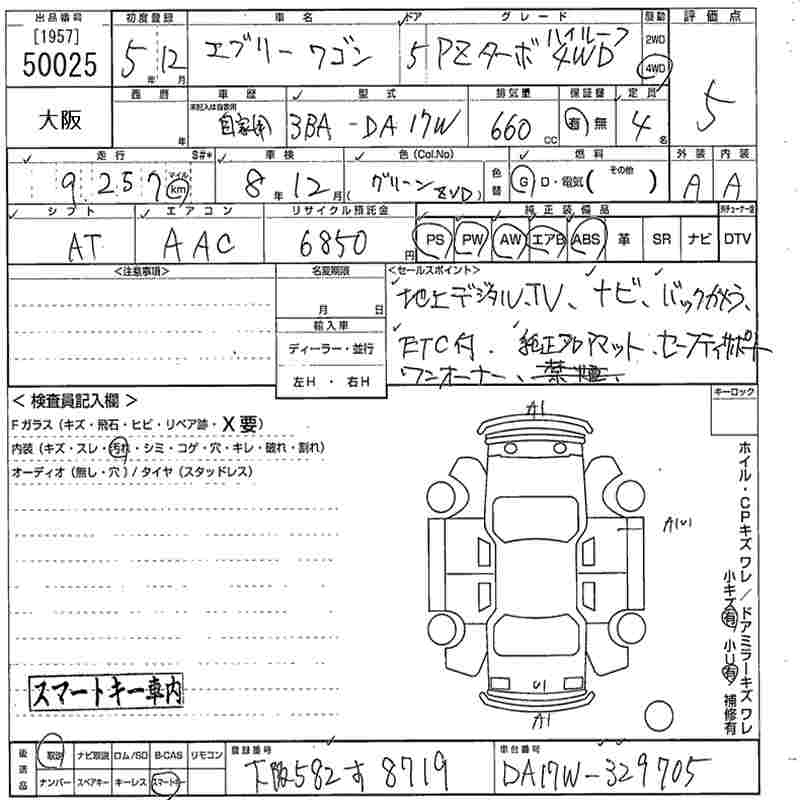 出品番号 初度登録 車名 ドア グレード 駆動 評価点
[1957]
50025 5年 12月 エブリーワゴン 5 PZターボ ハイルーフ 4WD 2WD 4WD 5
大阪 西暦 年 車歴 未記入は自家用 自家用 型式 3BA-DA17W 排気量 660cc 保証書 有 無 定員 4名
走行 S#* 車検 色(Col.No) 色替 燃料 外装 内装
9257 マイル km 8年12月 (グリーン ZVD) G・D・電気( その他 ) A A
シフト エアコン リサイクル預託金 純正装備品
AT AAC 6850円 PS PW AW エアB ABS 革 SR ナビ DTV
<注意事項> 名変期限 <セールスポイント>
月 日 地上デジタルTV、ナビ、バックカメラ、
輸入車
ディーラー・並行 ETC付、純正フロアマット、セーフティサポート
左H・右H ワンオーナー、禁煙、
<検査員記入欄> キーロック
Fガラス(キズ・飛石・ヒビ・リペア跡・X要)
内装(キズ・スレ・汚れ・シミ・コゲ・穴・キレ・破れ・割れ)
オーディオ(無し・穴)/タイヤ(スタッドレス)
A1
A1U1
U1
A1
ホイル・CPキズワレ/ドアミラーキズワレ
小キズ有 小U有 補修有
スマートキー車内
後送品 取説 ナビ取説 ロム/SD B-CAS リモコン 登録番号 車台番号
ナンバー スペアキー キーレス スマートキー 大阪582す8719 DA17W-329705